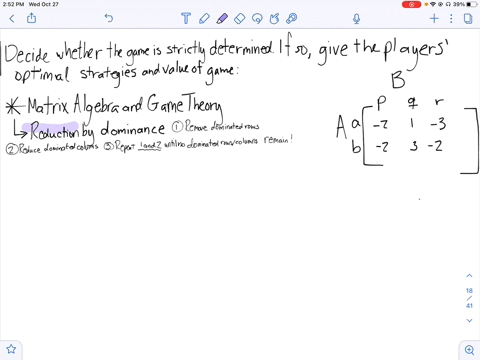 2:52 PM Wed Oct 27
39%
Decide whether the game is strictly determined. If so, give the players'
optimal strategies and value of game:
* Matrix Algebra and Game Theory
↳ Reduction by dominance ① Remove dominated rows
② Reduce dominated colums ③ Repeat 1 and 2 until no dominated rows/colums remain!
B
P q r
A a -2 1 -3
b -2 3 -2
18
/
41